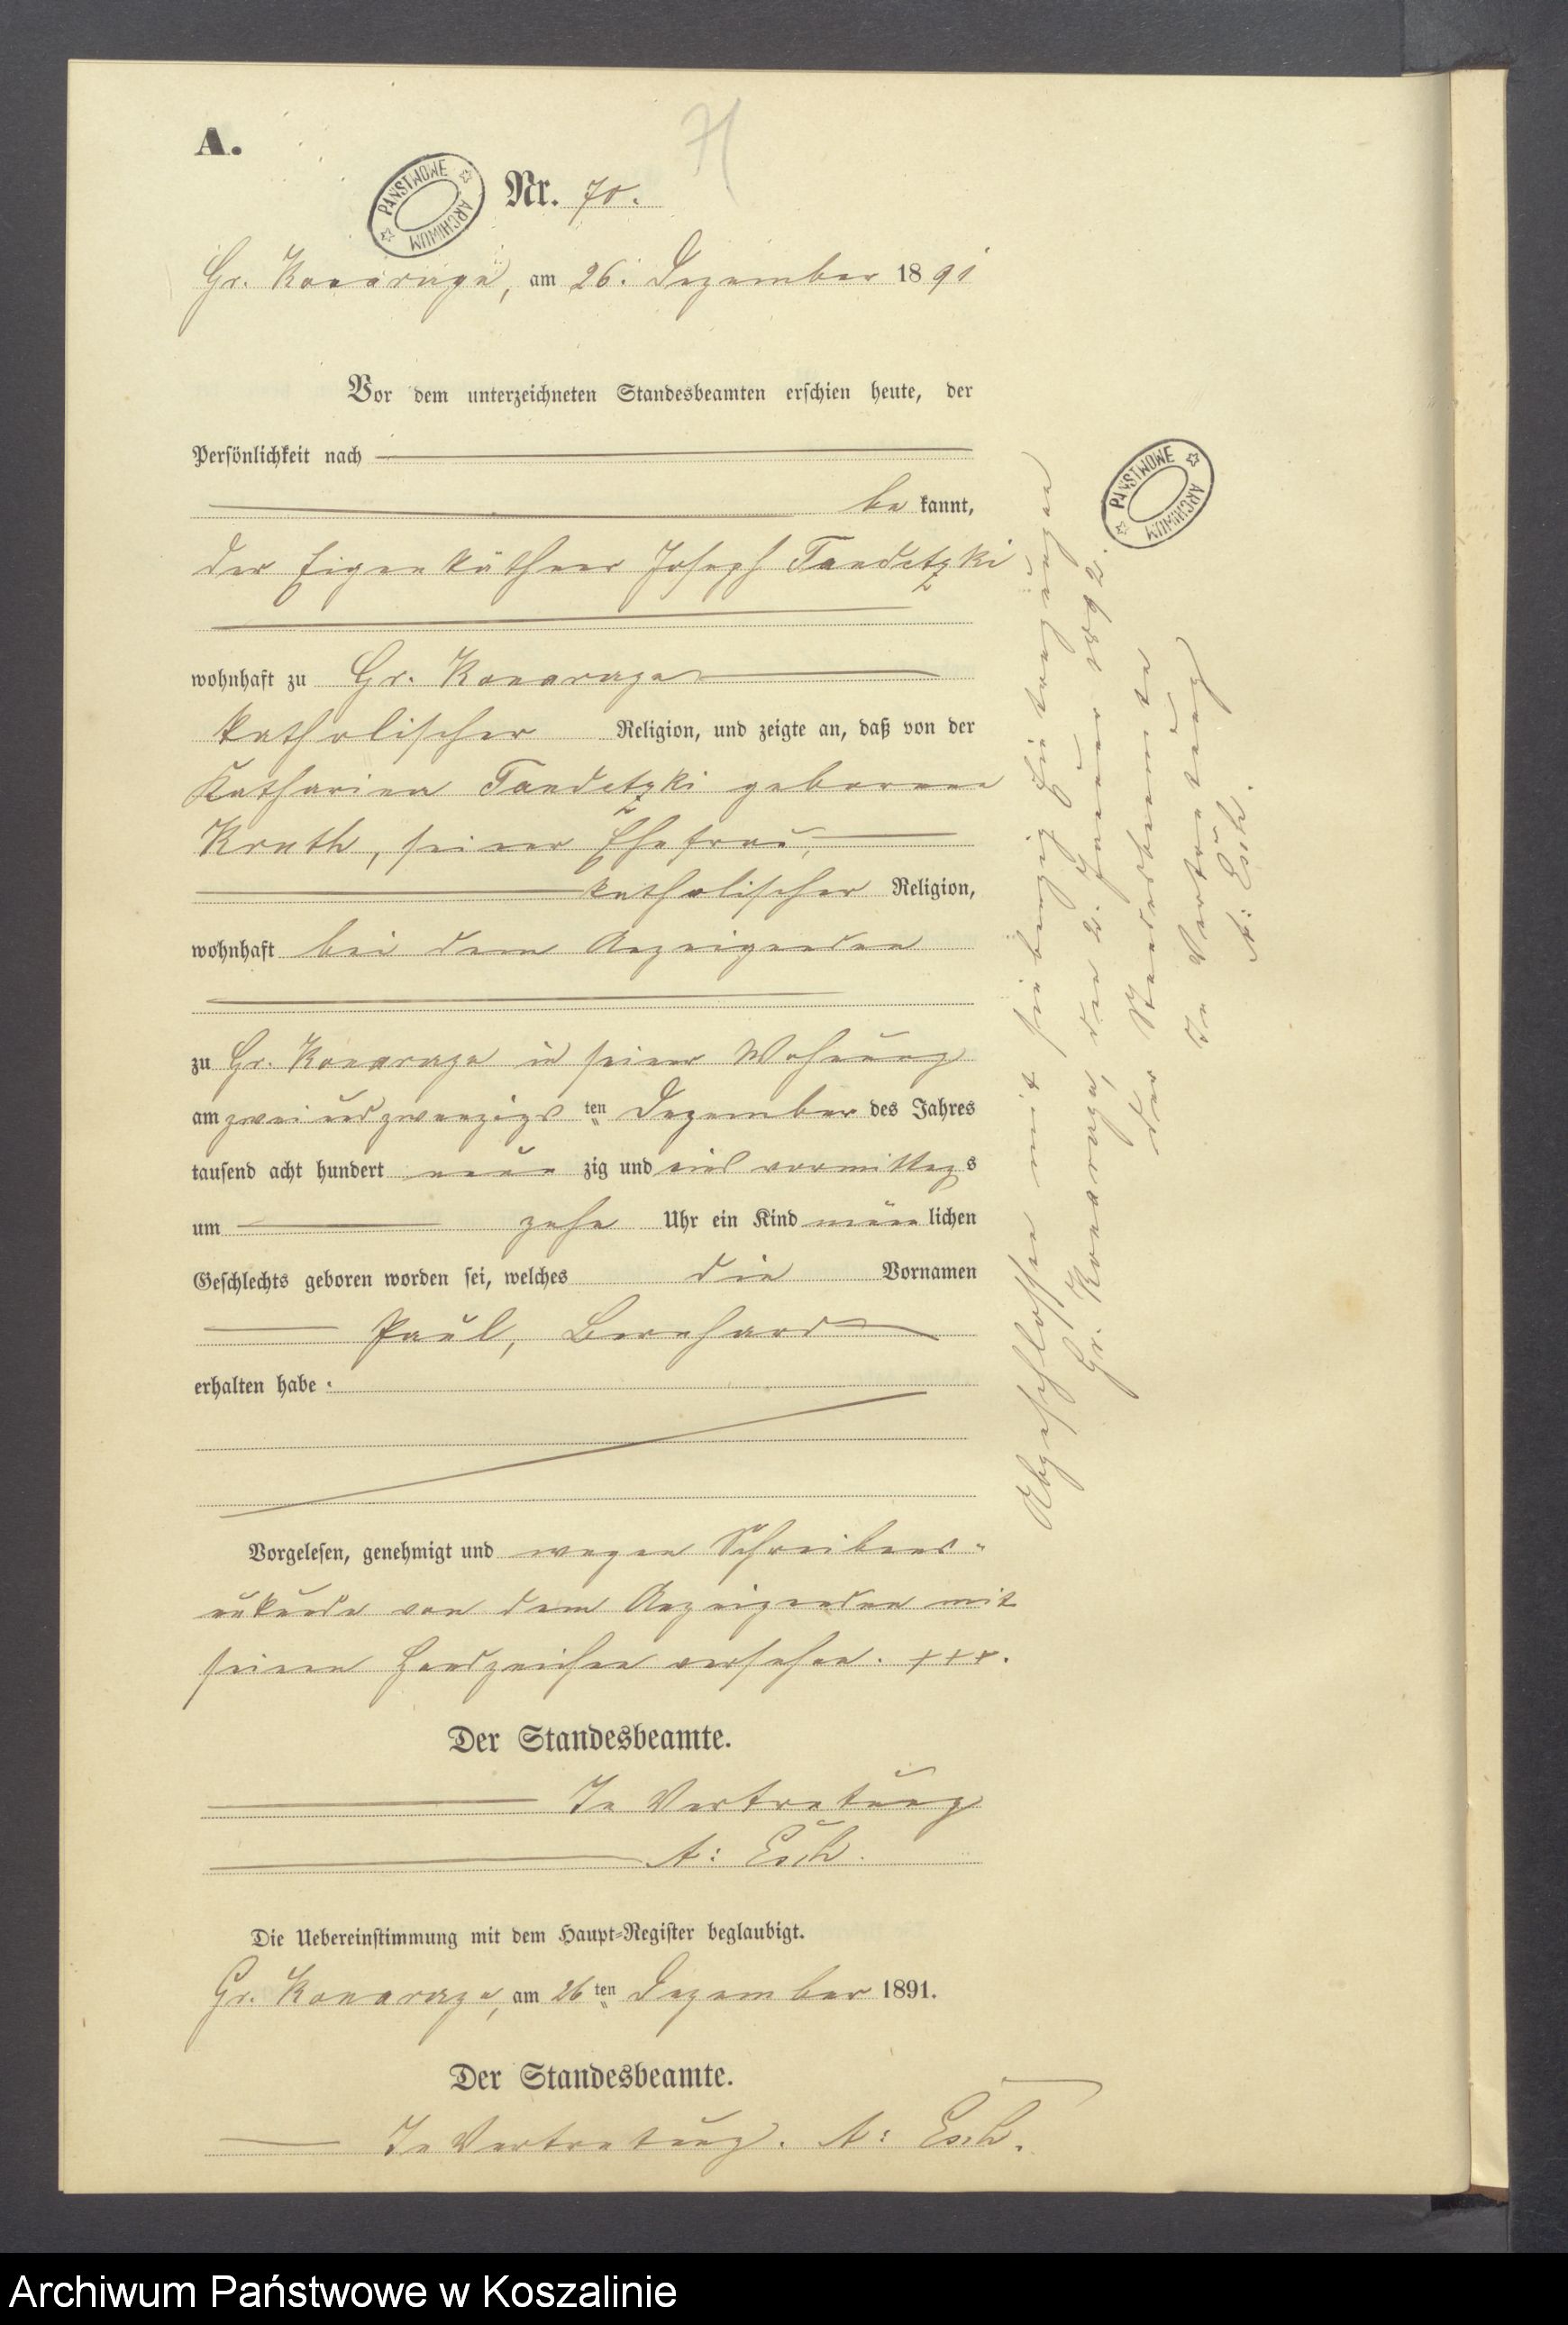 A.
71
PAŃSTWOWE ARCHIWUM
Nr. 70.
Gr. Konarzyn, am 26. Dezember 1891
Vor dem unterzeichneten Standesbeamten erschien heute, der
Persönlichkeit nach
be kannt,
der Eigenkäthner Joseph Tandetzki
wohnhaft zu Gr. Konarzyn
katholischer Religion, und zeigte an, daß von der
Katharina Tandetzki geborene
Knuth, seiner Ehefrau,
katholischer Religion,
wohnhaft bei dem Anzeigenden
zu Gr. Konarzyn in seiner Wohnung
am zweiundzwanzigs ten Dezember des Jahres
tausend acht hundert neun zig und eins vormittags
um zehn Uhr ein Kind männ lichen
Geschlechts geboren worden sei, welches die Vornamen
Paul, Bernhard
erhalten habe.
Vorgelesen, genehmigt und wegen Schreibens-
unkunde von dem Anzeigenden mit
seinem Handzeichen versehen. +++.
Der Standesbeamte.
In Vertretung
A: Esch.
Die Uebereinstimmung mit dem Haupt-Register beglaubigt.
Gr. Konarzyn, am 26 ten Dezember 1891.
Der Standesbeamte.
In Vertretung. A: Esch.
Abgeschlossen mit siebenzig Eintragungen
Gr. Konarzyn, den 2. Januar 1892.
Der Standesbeamte
In Vertretung
A: Esch.
PAŃSTWOWE ARCHIWUM
Archiwum Państwowe w Koszalinie